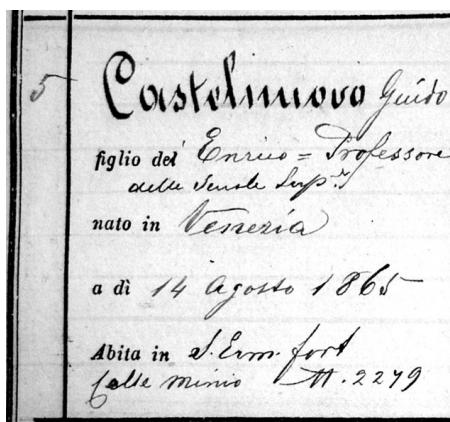 5 Castelnuovo Guido
figlio del Enrico = Professore
delle Scuole Sup.ri
nato in Venezia
a dì 14 Agosto 1865
Abita in S. Erm. fort
Calle Minio N. 2279